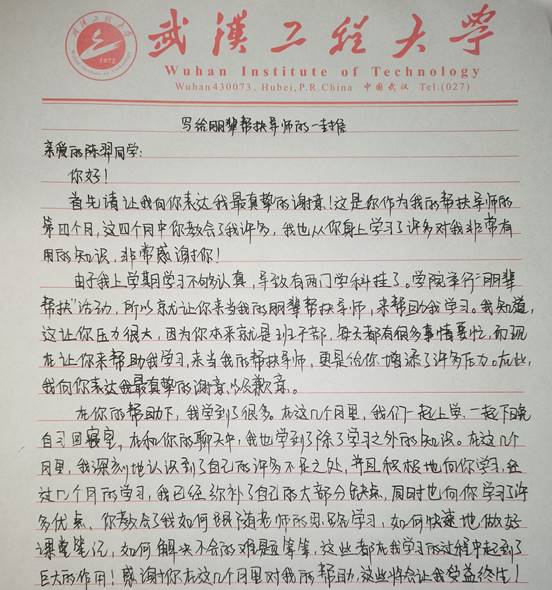 武汉工程大学
1972
武漢工程大学
Wuhan Institute of Technology
Wuhan 430073. Hubei, P.R.China 中国武汉 Tel:(027)
写给朋辈帮扶导师的一封信
亲爱的陈翠同学:
你好!
首先请让我向你表达我最真挚的谢意!这是你作为我的帮扶导师的
第四个月,这四个月中你教会了我许多,我也从你身上学习了许多对我非常有
用的知识,非常感谢你!
由于我上学期学习不够认真,导致有两门学科挂了。学院举行“朋辈
帮扶”活动,所以就让你来当我的朋辈帮扶导师,来帮助我学习。我知道,
这让你压力很大,因为你本来就是班干部,每天都有很多事情要忙,而现
在让你来帮助我学习,来当我的帮扶导师,更是给你增添了许多压力。在此,
我向你表达我最真挚的谢意以及歉意。
在你的帮助下,我学到了很多。在这几个月里,我们一起上学,一起下晚
自习回寝室,在和你的聊天中,我也学到了除了学习之外的知识。在这几个
月里,我深刻地认识到了自己的许多不足之处,并且积极地向你学习,经
过几个月的学习,我已经弥补了自己的大部分缺点,同时也向你学习了许
多优点,你教会了我如何跟随老师的思路学习,如何快速地做好
课堂笔记,如何解决不会的难题等等,这些都在我学习的过程中起到了
巨大的作用!感谢你在这几个月里对我的帮助,这些将会让我受益终生!